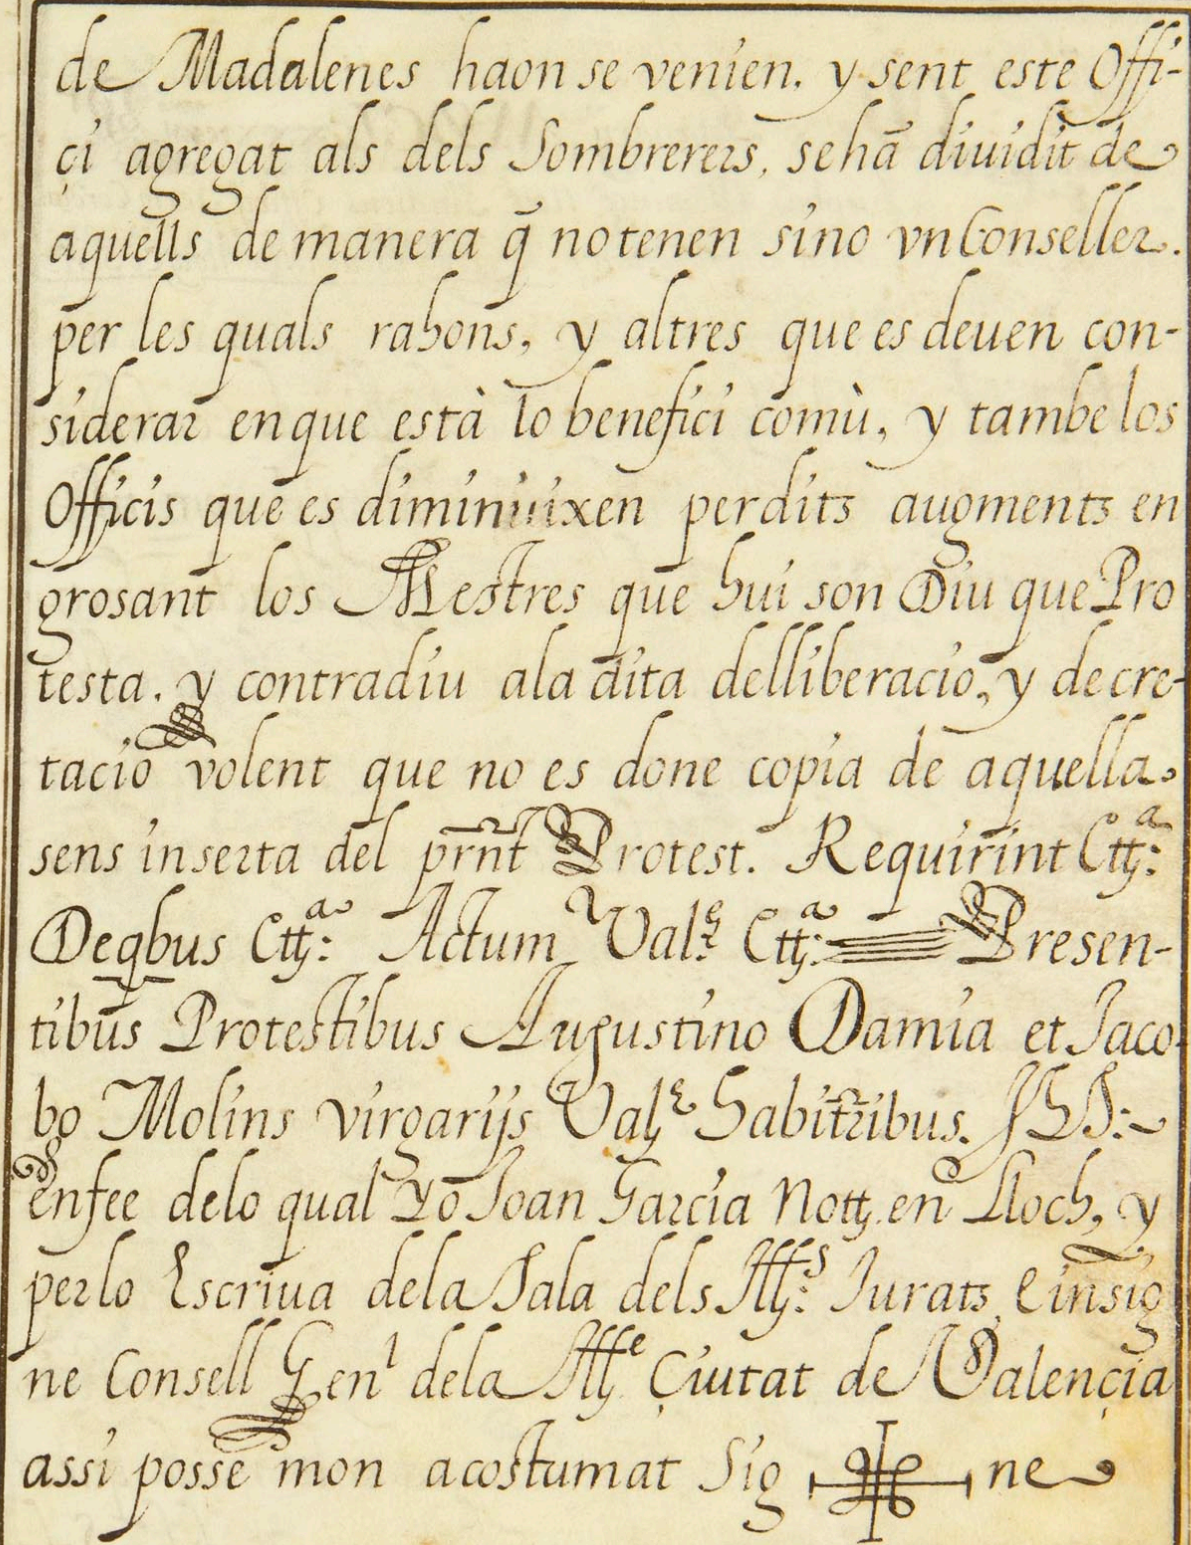 de Madalenes haon se venien. y sent este Offi-
çi agregat als dels Sombrerers, se hā diuidit de
aquells de manera q̄ no tenen sino vn Conseller.
per les quals rahons, y altres que es deuen con-
siderar en que està lo benefici comù, y tambe los
Officis que es diminuixen perdits augments en
grosant los Mestres que hui son Diu que Pro
testa. y contradiu a la dita delliberacio, y decre-
tacio volent que no es done copia de aquella
sens inserta del pr̄nt Protest. Requirint Cttᵃ:
De qbus Cttᵃ: Actum Valᵉ: Cttᵃ: Presen-
tibus Protestibus Augustino Damia et Jaco-
bo Molins virgarijs Valᵉ habitr̄ibus. JHS:
en fee de lo qual Yo Joan Garcia Nott. en Lloch, y
per lo Escriua de la Sala dels Illˢ: Jurats, e insig
ne Consell Genˡ de la Illᵉ Çiutat de Valençia
assi posse mon acostumat Sig ne